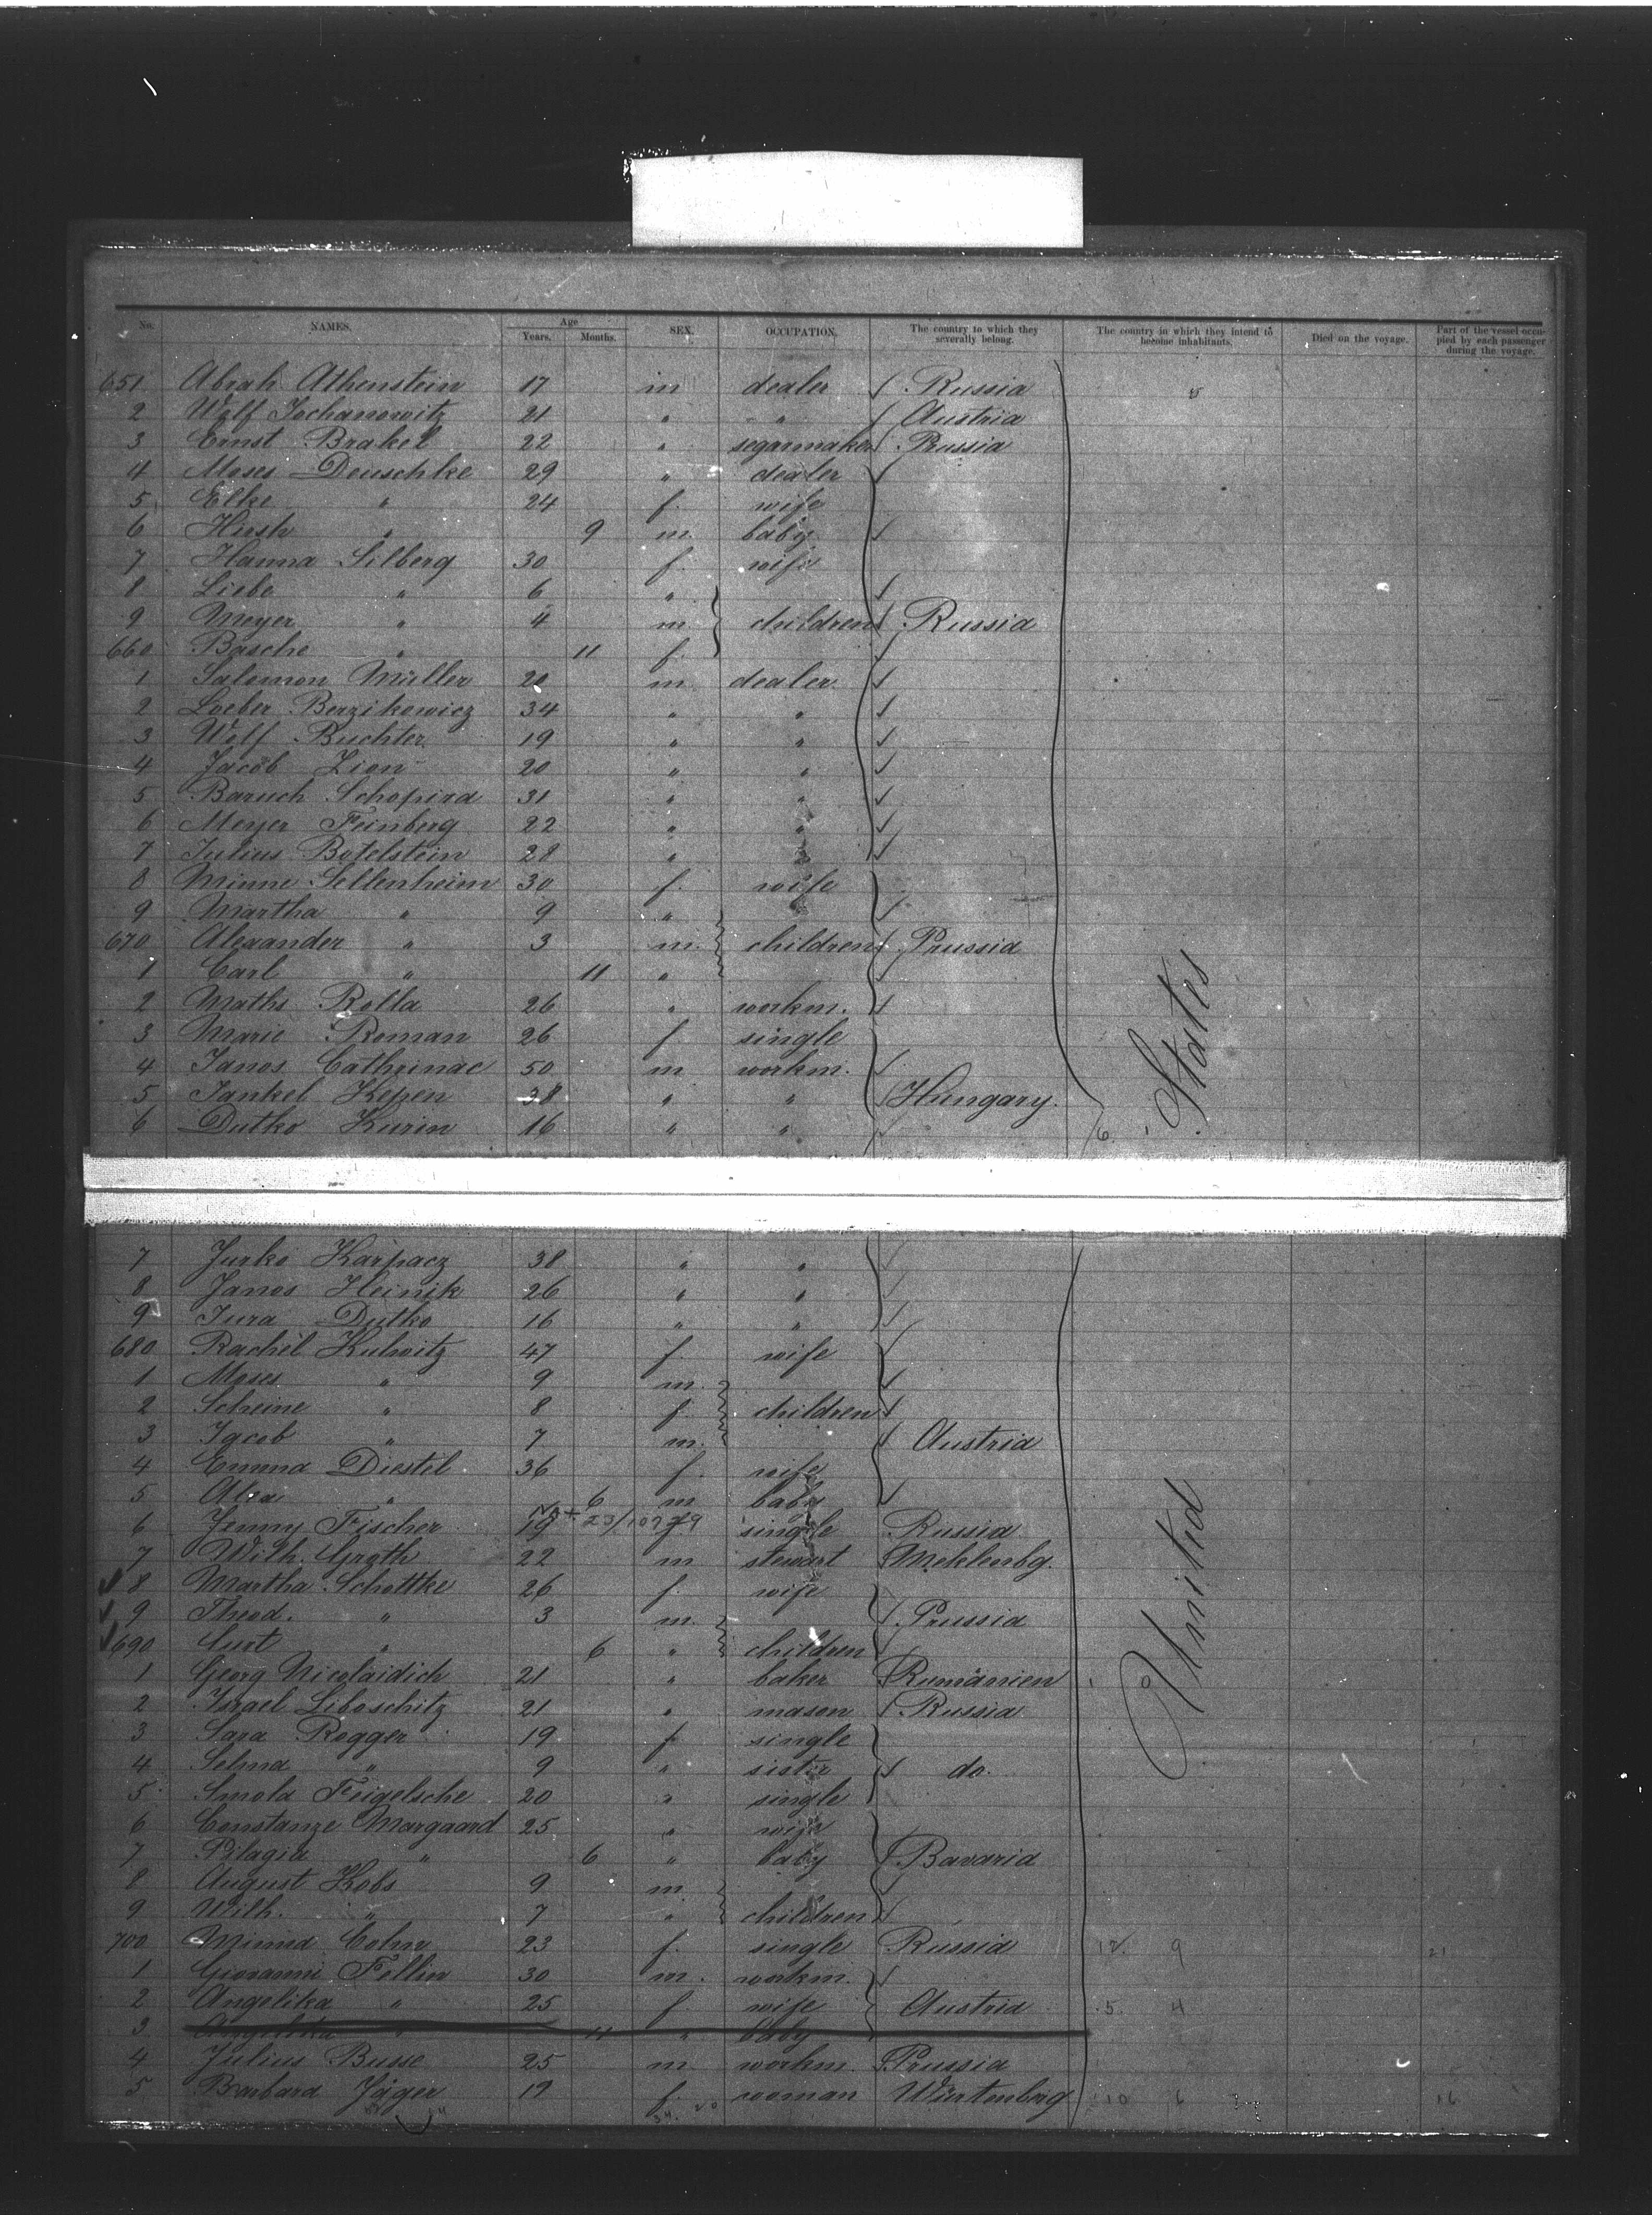 No. NAMES. Age Years. Months. SEX. OCCUPATION. The country to which they severally belong. The country in which they intend to become inhabitants. Died on the voyage. Part of the vessel occupied by each passenger during the voyage.
651 Abrah Athenstein 17 m dealer Russia
2 Wolf Jochanowitz 21 " " Austria
3 Ernst Brakel 22 " segarmaker Prussia
4 Moses Deuschke 29 " dealer
5 Elke " 24 f. wife
6 Hirsh " 9 m. baby
7 Hanna Silberg 30 f. wife
8 Liebe " 6 "
9 Meyer " 4 m. children Russia
660 Basche " 11 f.
1 Salomon Müller 20 m dealer
2 Loeber Berzikowicz 34 " "
3 Wolf Buchter 19 " "
4 Jacob Zion 20 " "
5 Baruch Schopira 31 " "
6 Meyer Feinberg 22 " "
7 Julius Botelstein 28 " "
8 Minne Sellenheim 30 f. wife
9 Martha " 9 "
670 Alexander " 3 m. children Prussia
1 Carl " 11 "
2 Maths Rolla 26 " workm.
3 Marie Roman 26 f single
4 Janos Cathrinac 50 m workm.
5 Jankel Kepen 38 " " Hungary.
6 Dutko Kurin 16 " "
7 Jurko Karpacz 38 " "
8 Janos Heinik 26 " "
9 Jura Dutko 16 " "
680 Rachel Hulwitz 47 f. wife
1 Moses " 9 m.
2 Scheine " 8 f. children
3 Jacob " 7 m. Austria
4 Emma Diestel 36 f. wife
5 Alex " 6 m baby
6 Jenny Fischer 19 f single Russia
7 Wilh. Groth 22 m stewart Meklenbg.
8 Martha Schottke 26 f. wife
9 Theod. " 3 m. Prussia
690 Curt " 6 " children
1 Georg Nicolaidich 21 " baker Rumänien
2 Israel Liboschitz 21 " mason Russia
3 Sara Rogger 19 f single
4 Selma " 9 " sister do.
5 Smola Feigelsche 20 " single
6 Constanze Margaard 25 " wife
7 Pilagia " 6 " baby Bavaria
8 August Kobs 9 m
9 Wilh. " 7 " children
700 Minna Cohn 23 f. single Russia 9 21
1 Giovanni Fellin 30 m. workm.
2 Angelika " 25 f. wife Austria 5 4
3 Angelika " 11 " baby
4 Julius Busse 25 m workm. Prussia
5 Barbara Jäger 19 f. woman Würtenberg 10 6 16
United States